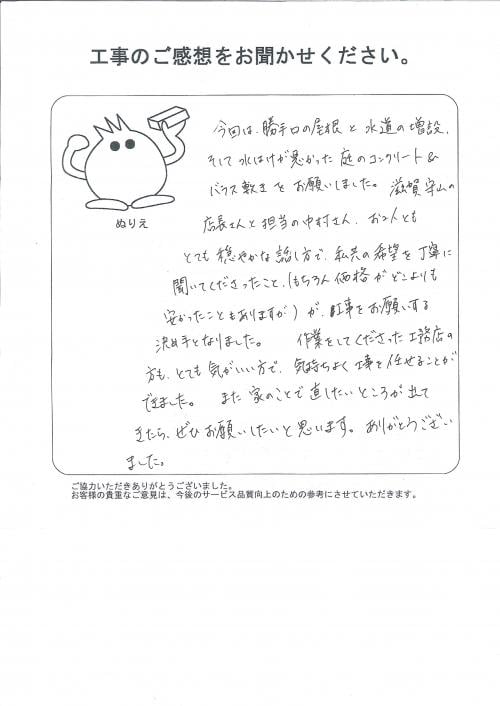 工事のご感想をお聞かせください。
ぬりえ
今回は、勝手口の屋根と水道の増設、
そして水はけが悪かった庭のコンクリート&
バラス敷きをお願いしました。滋賀守山の
店長さんと担当の中村さん、お2人とも
とても穏やかな話し方で、私共の希望を丁寧に
聞いてくださったこと、(もちろん価格がどこよりも
安かったこともありますが)が、工事をお願いする
決め手となりました。 作業をしてくださった工務店の
方も、とても気がいい方で、気持ちよく工事を任せることが
できました。 また家のことで直したいところが出て
きたら、ぜひお願いしたいと思います。ありがとうござい
ました。
ご協力いただきありがとうございました。
お客様の貴重なご意見は、今後のサービス品質向上のための参考にさせていただきます。